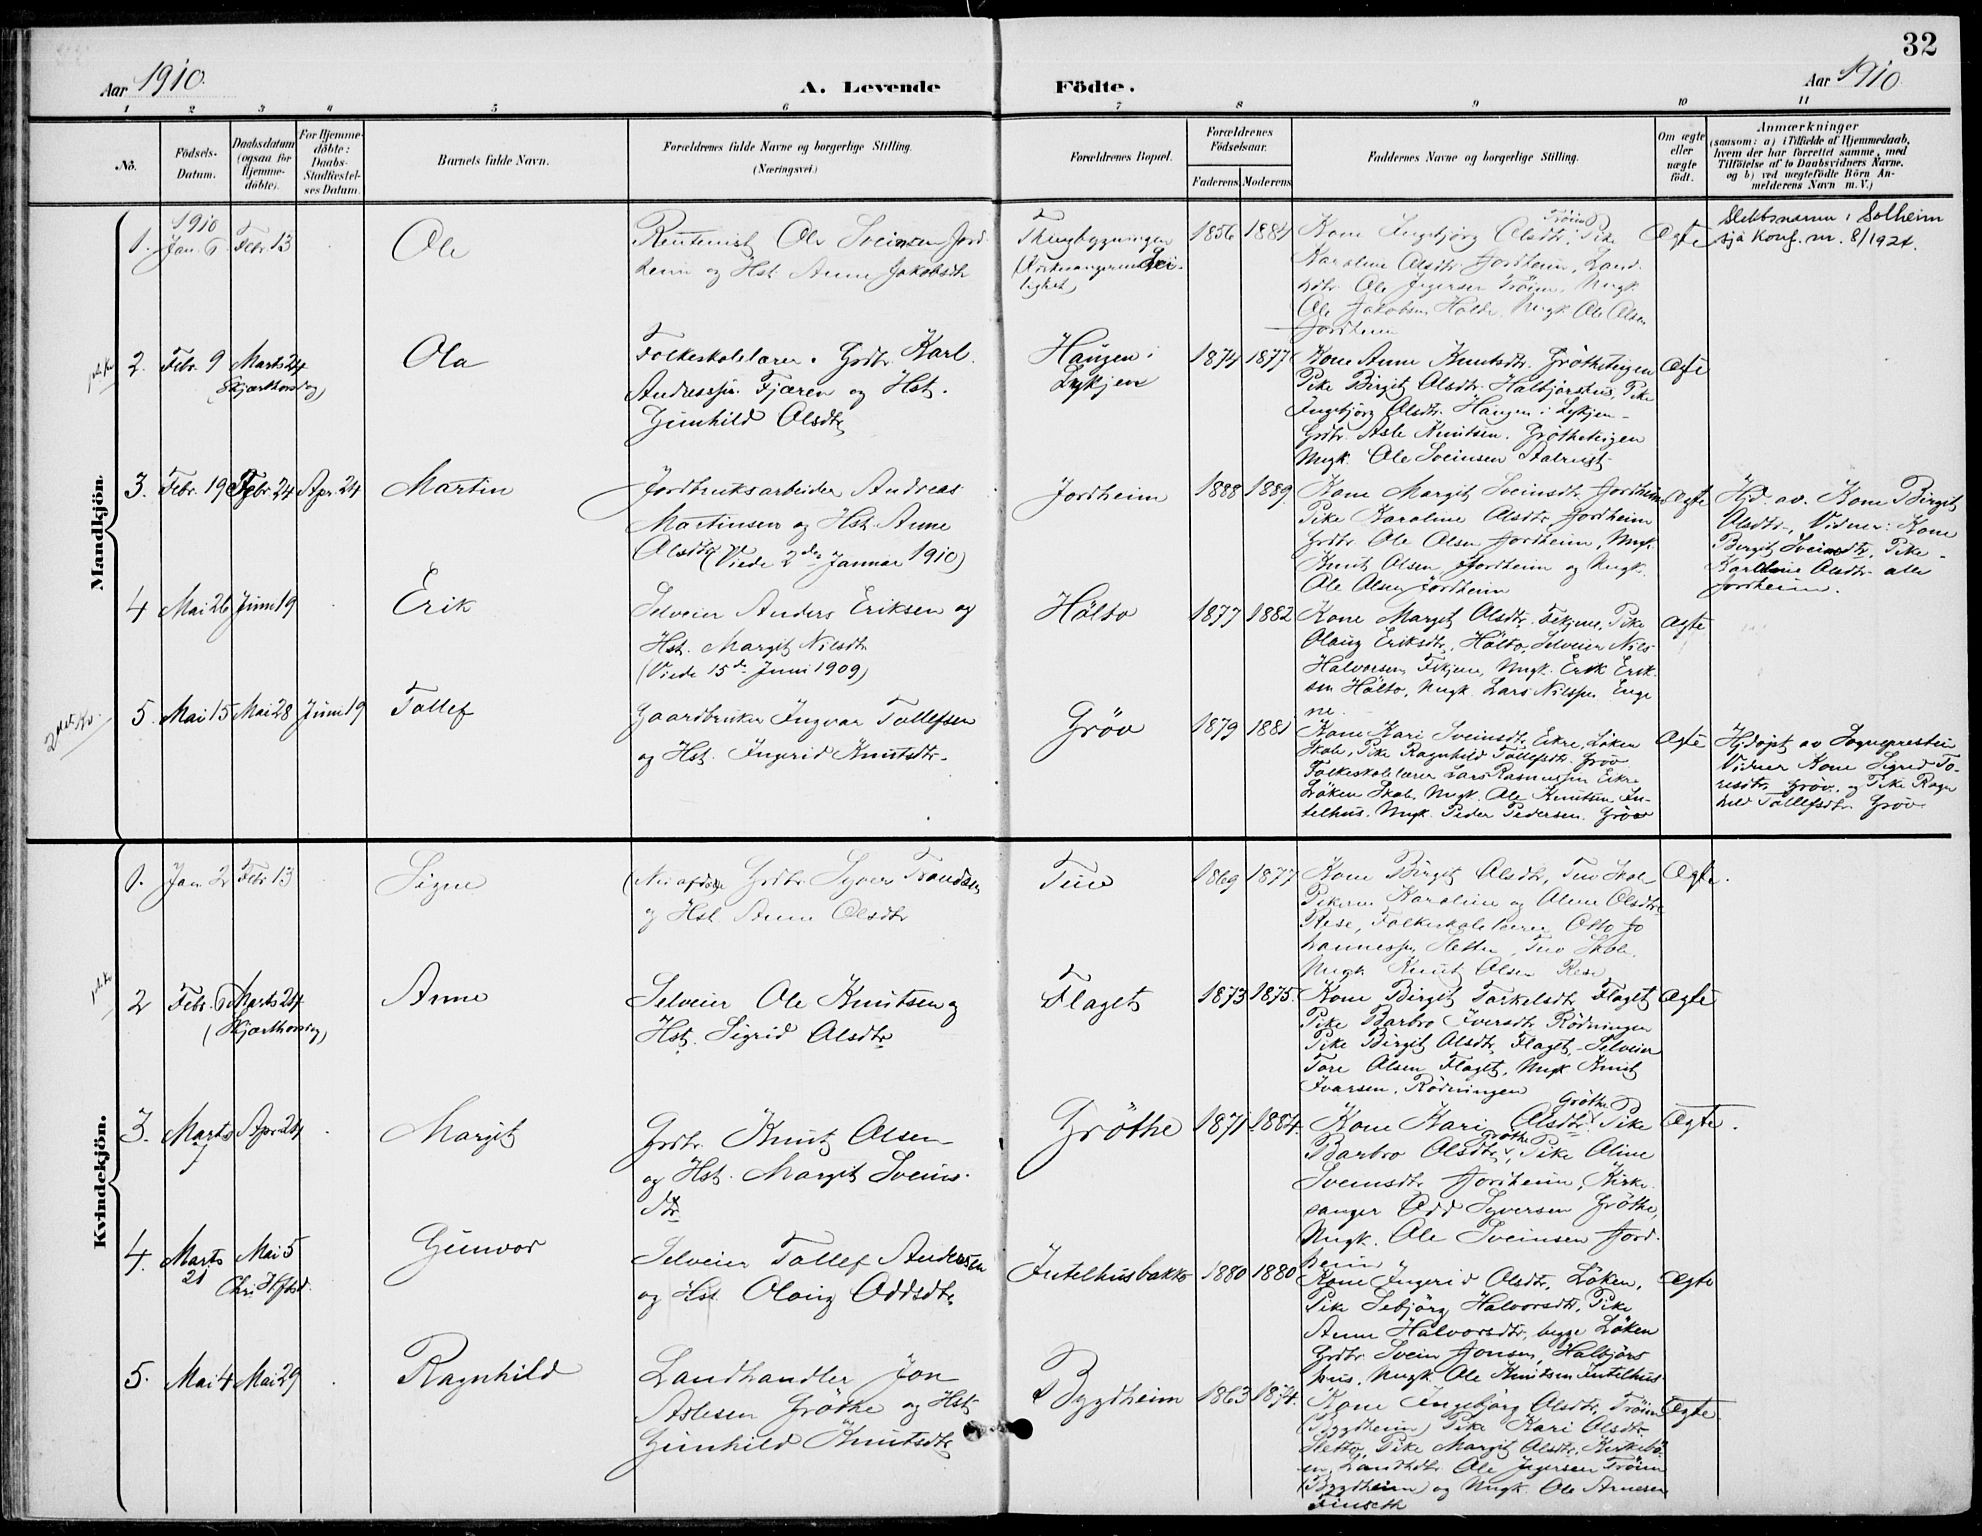 32
Aar 1910.
A. Levende
Födte.
Aar 1910
1 2 3 4 5 6 7 8 9 10 11
No.
Födsels-
Datum.
Daabsdatum
(ogsaa for
Hjemme-
döbte).
For Hjemme-
döbte:
Daabs-
Stadfæstel-
ses Datum.
Barnets fulde Navn.
Forældrenes fulde Navne og borgerlige Stilling.
(Næringsvei.)
Forældrenes Bopæl.
Forældrenes
Födselsaar.
Faderens
Moderens
Faddernes Navne og borgerlige Stilling.
Om ægte
eller
uægte
födt.
Anmærkninger
(saasom: a) i Tilfælde af Hjemmedaab,
hvem der har forrettet samme, med
Tilföielse af to Daabsvidners Navne.
og b) ved uægtefödte Börn An-
melderens Navn m. V.)
Mandkjön.
1910
1. Jan. 6 Febr 13
Ole
Rentenist Ole Sveinsen Jord-
heim og Hst. Anne Jakobsdtr
Thingbygningen
(Kirkesangerens Lei-
lighet)
1856 1884
Kone Ingebjörg Olsdtr. Tröim Pike
Karoline Olsdtr. Jordheim, Land-
hdlr. Ole Ingersen Tröim, Ungk.
Ole Jakobsen Holto, Ungk. Ole Olsen
Jordheim
Ægte
Slektsnavn: Solheim
sjå konf. nr. 8/1924.
2. Febr. 9 Marts 24
(Skjærthorsdag)
Ola
Folkeskolelærer, Grdbr. Karl
Andressøn Fjæren og Hst.
Gunhild Olsdtr
Haugen i
Lykjen
1874 1877
Kone Anne Knutsdtr. Grötheteigen
Pike Birgit Olsdtr. Halbjörshus, Pike
Ingebjörg Olsdtr. Haugen i Lykjen
Grdbr. Asle Knutsen. Grötheteigen
Ungk. Ole Sveinsen
Ægte
3. Febr. 19 Febr 24 Apr. 24
Martin
Jordbruksarbeider Andreas
Martinsen og Hst. Anne
Olsdtr (Viede 2den Januar 1910)
Jordheim
1888 1889.
Kone Margit Sveinsdtr. Jordheim
Pike Karoline Olsdtr, Jordheim
Grdbr. Ole Olsen Jordheim, Ungk.
Knut Olsen Jordheim og Ungk.
Ole Olsen Jordheim
Ægte
Hjd. av. Kone Birgit
Olsdtr., Vidner: Kone
Birgit Sveinsdtr. Pike
Karoline Olsdtr. alle
Jordheim.
4 Mai 26 Juni 19
Erik
Selveier Anders Eriksen og
Hst. Margit Nilsdtr
(Viede 15de Juni 1909)
Hölto
1877 1882
Kone Margit Olsdtr. Fekjene, Pike
Olaug Eriksdtr, Hölto, Selveier Nils
Halvorsen, Fekjene, Ungk. Erik Erik-
sen Hölto, Ungk. Lars Nilssen Enge-
ne.
Ægte
2det Kv.
5. Mai 15 Mai 28 Juni 19
Tollef
Gaardbruker Ingvar Tollefsen
og Hst. Ingerid Knutsdtr.
Gröv
1879 1881
Kone Kari Sveinsdtr, Eikre, Löken
Skole, Pike Ragnhild Tollefsdtr. Gröv
Folkeskolelærer Lars Rasmussen Eikre
Löken Skole. Ungk. Ole Knutsen In-
telhus. Ungk. Peder Pedersen. Gröv
Ægte
Hjdöpt av Sogneprestin
Vidner Kone Sigrid To-
resdtr, Gröv, og Pike Ragn
hild Tollefsdtr. Gröv
Kvindekjön.
1. Jan. 2 Febr 13
Signe
Grdbr. Syver Trondsen
og Hst. Anne Olsdtr
Tuv
1869 1877
Kone Birgit Olsdtr, Tuv Skole
Pikerne Karoline og Aline Olsdtre
Rese, Folkeskolelærer Otto Jo-
hannessen Sletten, Tuv Skole.
Ungk. Knut Olsen Rese
Ægte.
2 Febr. 6 Marts 24.
(Skjærthorsdag)
Anne
Selveier Ole Knutsen og
Hst. Sigrid Olsdtr
Flaget
1873 1875.
Kone Birgit Tarkelsdtr, Flaget
Pike Barbro Iversdtr Rödningen
Pike Birgit Olsdtr, Flaget, Selveier
Tore Olsen Flaget, Ungk Knut
Ivarsen, Rödningen
Ægte
3. Marts
7
Apr 24
Margit
Grdbr. Knut Olsen
og Hst. Margit Sveins-
dtr
Gröthe
1871 1884.
Kone Kari Olsdtr. Gröthe Pike
Barbro Olsdtr, Gröthe, Pike Oline
Sveinsdtr Jordheim, Kirke-
sanger Odd Syversen Gröthe,
Ungk. Ole Sveinsen Jord-
heim
Ægte.
4. Marts
21
Mai 5
Chr. Hftsd.
Gunvor
Selveier Tollef Andersen
og Hst. Olaug Oddsdtr
Intelhusbakko
1880 1880
Kone Ingerid Olsdtr, Löken,
Pike Sebjörg Halvorsdtr, Pike
Anne Halvorsdtr, begge Löken
Grdbr. Svein Jonsen, Halbjörs
hus, Ungk. Ole Knutsen Intelhus
Ægte
5. Mai 4 Mai 29
Ragnhild
Landhandler Jon
Aslesen Gröthe og Hst.
Gunhild Knutsdtr
Bygdheim
1863 1874.
Kone Ingebjörg Olsdtr, Tröim
(Bygdheim) Pike Kari Olsdtr.
Sletto, Pike Margit Olsdtr. Kirkebö-
en, Landhdlr. Ole Ingersen Tröim
(Bygdheim) og Ungk. Ole Arnesen
Finseth
Ægte.